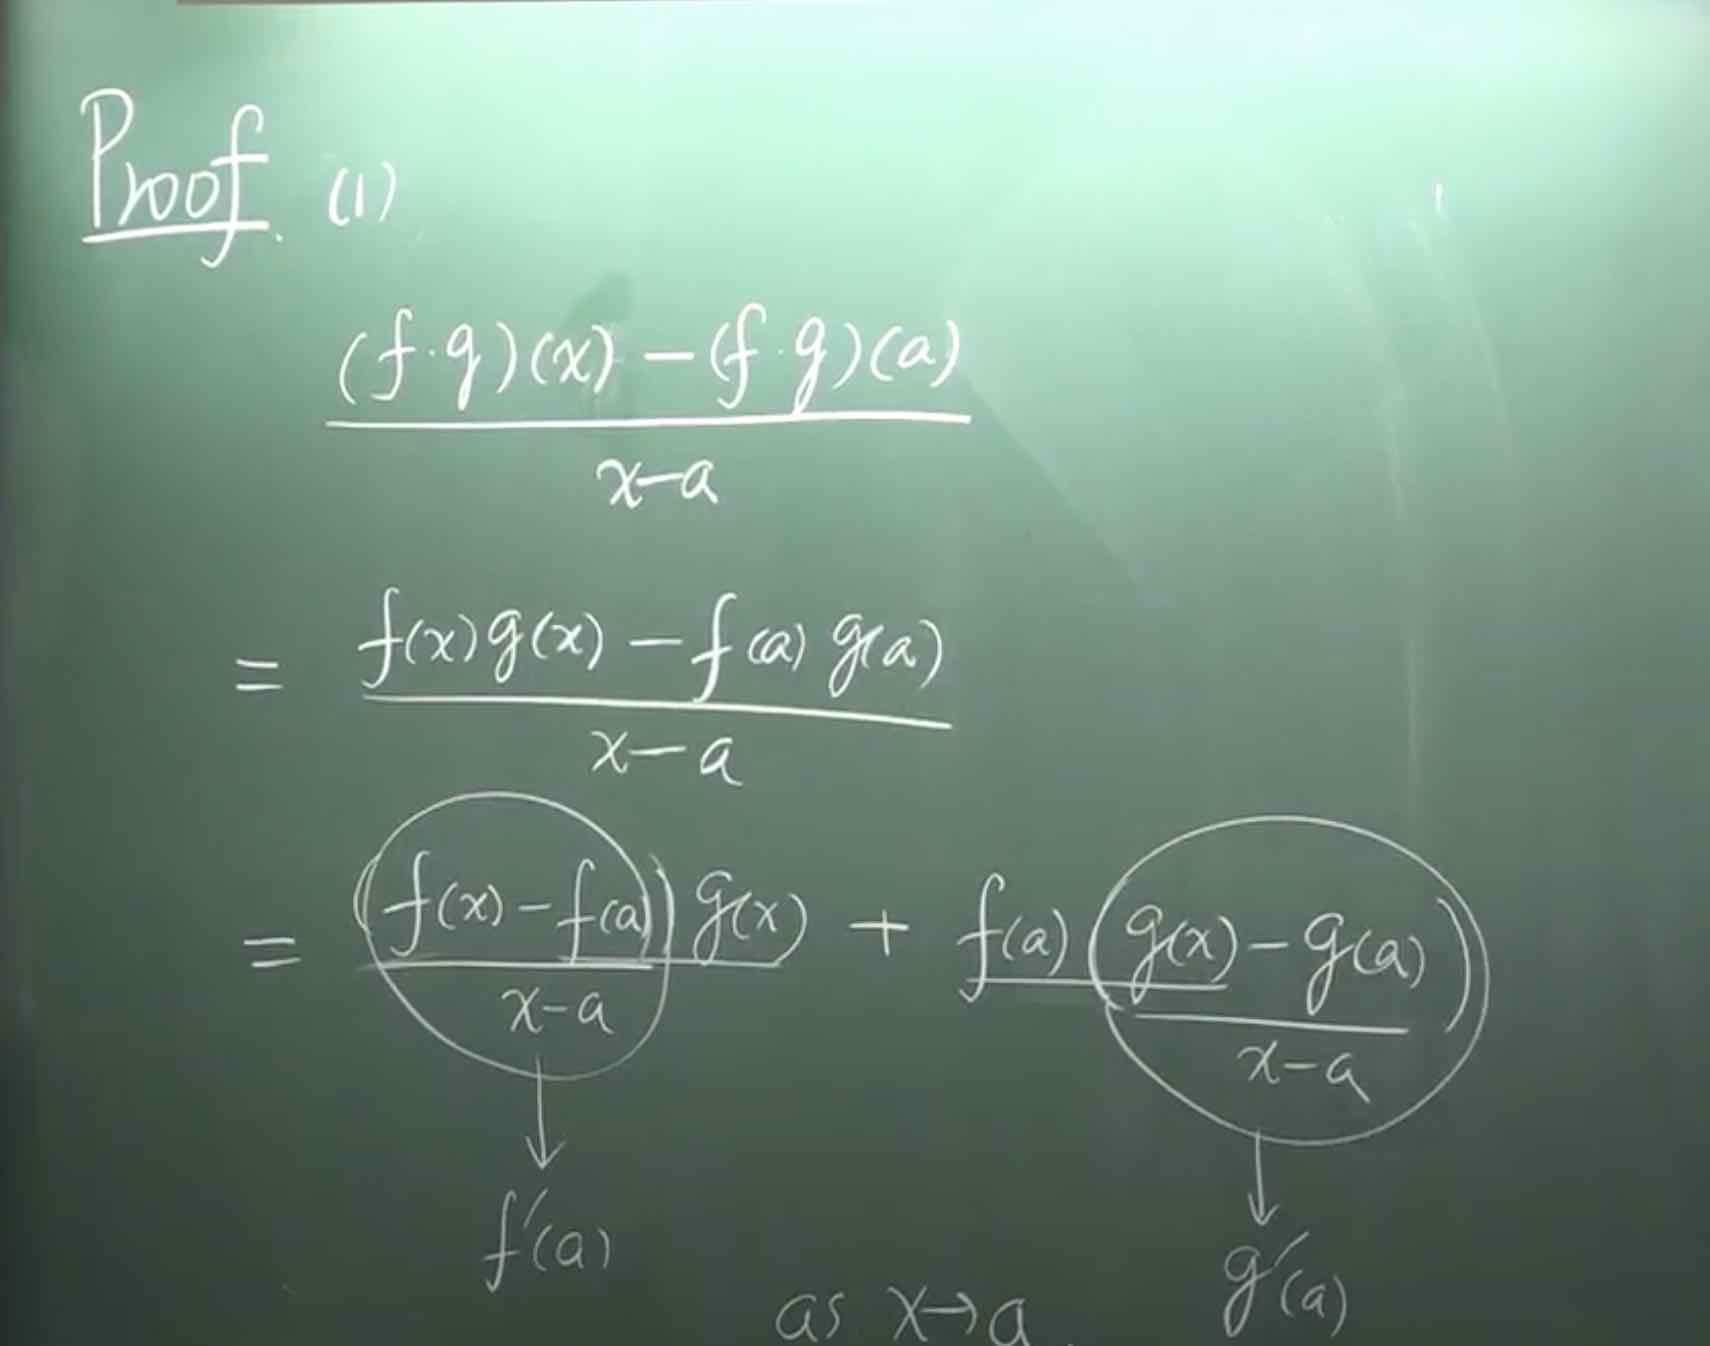 Proof. (1)
(f·g)(x) – (f·g)(a)
x–a
= f(x)g(x) – f(a) g(a)
x – a
= (f(x) – f(a)) g(x) + f(a) (g(x) – g(a))
x–a x–a
f'(a) g'(a)
as x→a.